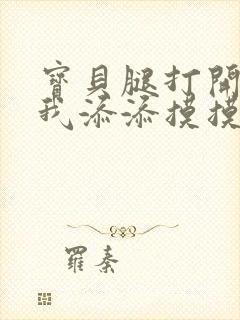 寶貝腿打開
我添添摸摸
羅秦